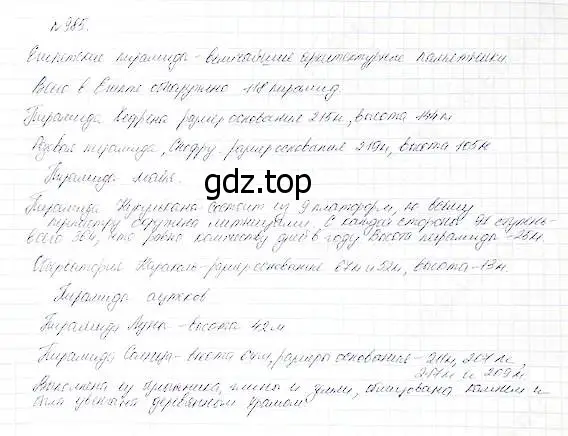 №985.
Египетские пирамиды - величайшие архитектурные памятники.
Всего в Египте обнаружено 118 пирамид.
Пирамида Хефрена размер основания 215м, высота - 144м
Розовая пирамида, Снофру. размер основания 219м, высота 105м
Пирамида майя.
gdz.top
Пирамида Кукулькана состоит из 9 платформ, по всему
периметру окружена лестницами. С каждой стороны 91 ступень
всего 364, что равно количеству дней в году Высота пирамиды - 25м.
Обсерватория Караколь - размер основания 67м и 52м, высота - 13м.
Пирамида ацтеков
Пирамида Луны - высота 42м
Пирамида Солнца - высота 64м, размеры основания - 211м, 207м,
217м и 209м
Выполнена из глины и земли, облицована камнем и
была увенчана деревянным храмом